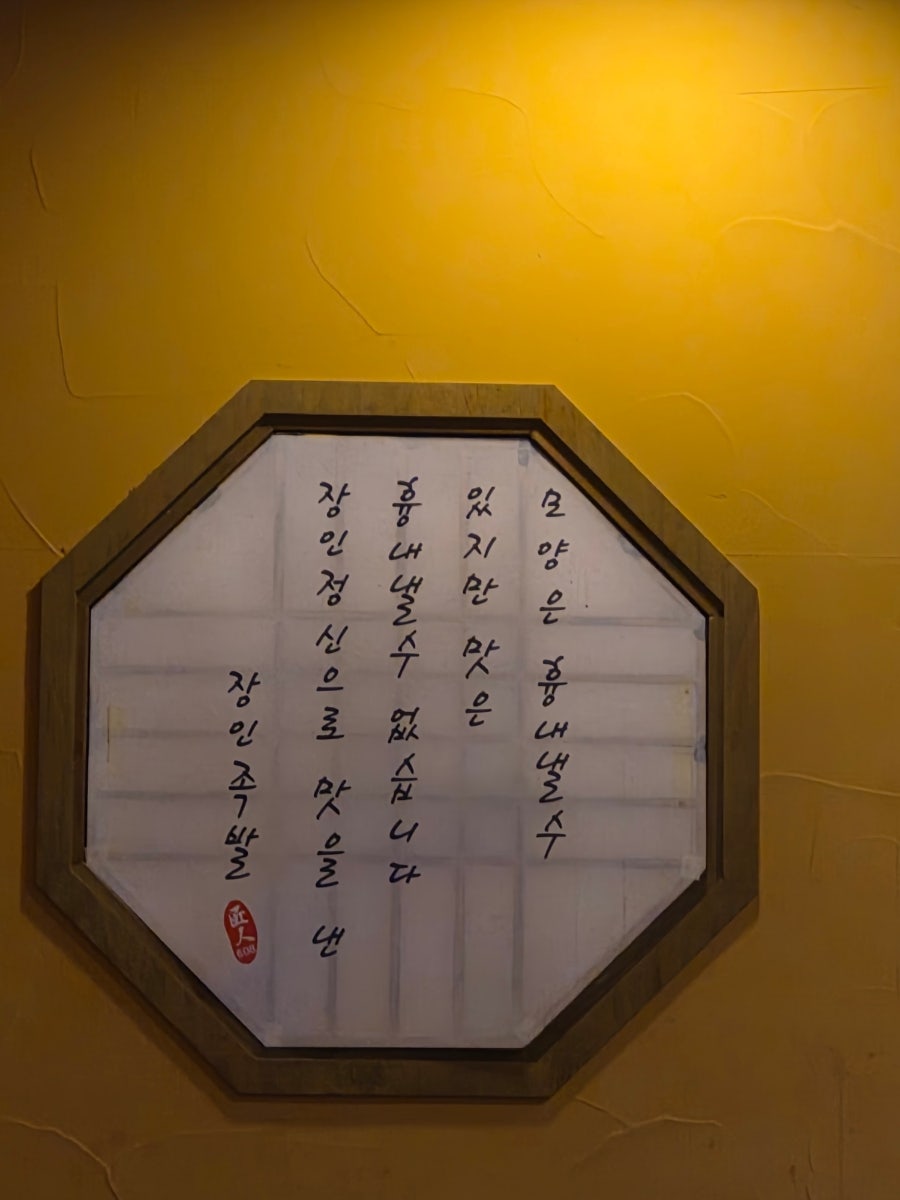 모양은 흉내낼수
있지만 맛은
흉내낼수 없습니다
장인정신으로 맛을 낸
장인족발
匠人